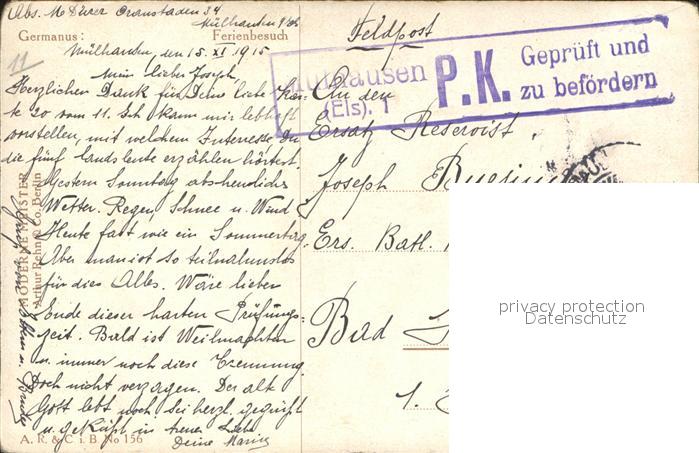 Abs. M Oranstaden 34
Mülhausen i/Els
Germanus: Ferienbesuch
Mülhausen, den 15. XI 1915
11
Mein lieber Joseph,
Herzlichen Dank für Deine liebe Kar-
te 20 vom 11. Ich kann mir lebhaft
vorstellen, mit welchem Interesse Du
die fünf Landsleute erzählen hörtest.
Gestern Sonntag abscheuliches
Wetter. Regen, Schnee u. Wind
Heute fast wie ein Sommertag.
Aber man ist so teilnahmslos
für dies Alles. Wäre lieber
Ende dieser harten Prüfungs-
zeit. Bald ist Weihnachten
u. immer noch diese Trennung
Doch nicht verzagen. Der alte
Gott lebt noch. Sei herzl. gegrüßt
u. geküßt in treuer Liebe
Deine
MODERNE MEISTER
Arthur Rehn & Co. Berlin
A. R. & C. i. B. No 156
Feldpost
Mülhausen
(Els). 1
P.K.
Geprüft und
zu befördern
An den
Ersatz Reservist
Joseph
Ers. Batl.
Bad
1.
privacy protection
Datenschutz